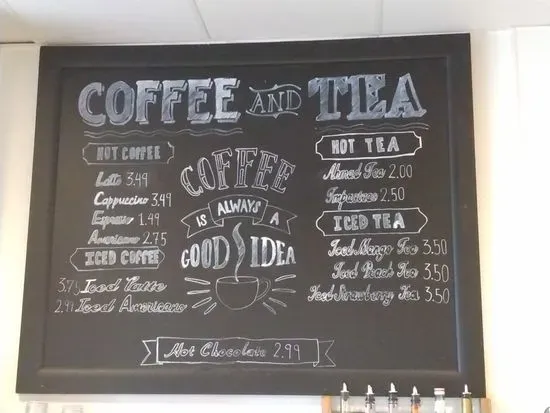 COFFEE AND TEA
HOT COFFEE
Latte 3.49
Cappuccino 3.49
Espresso 1.49
Americano 2.75
ICED COFFEE
3.75 Iced Latte
2.99 Iced Americano
COFFEE
IS ALWAYS A
GOOD IDEA
HOT TEA
Ahmad Tea 2.00
2.50
ICED TEA
Iced Mango Tea 3.50
Iced Peach Tea 3.50
Iced Strawberry Tea 3.50
Hot Chocolate 2.99